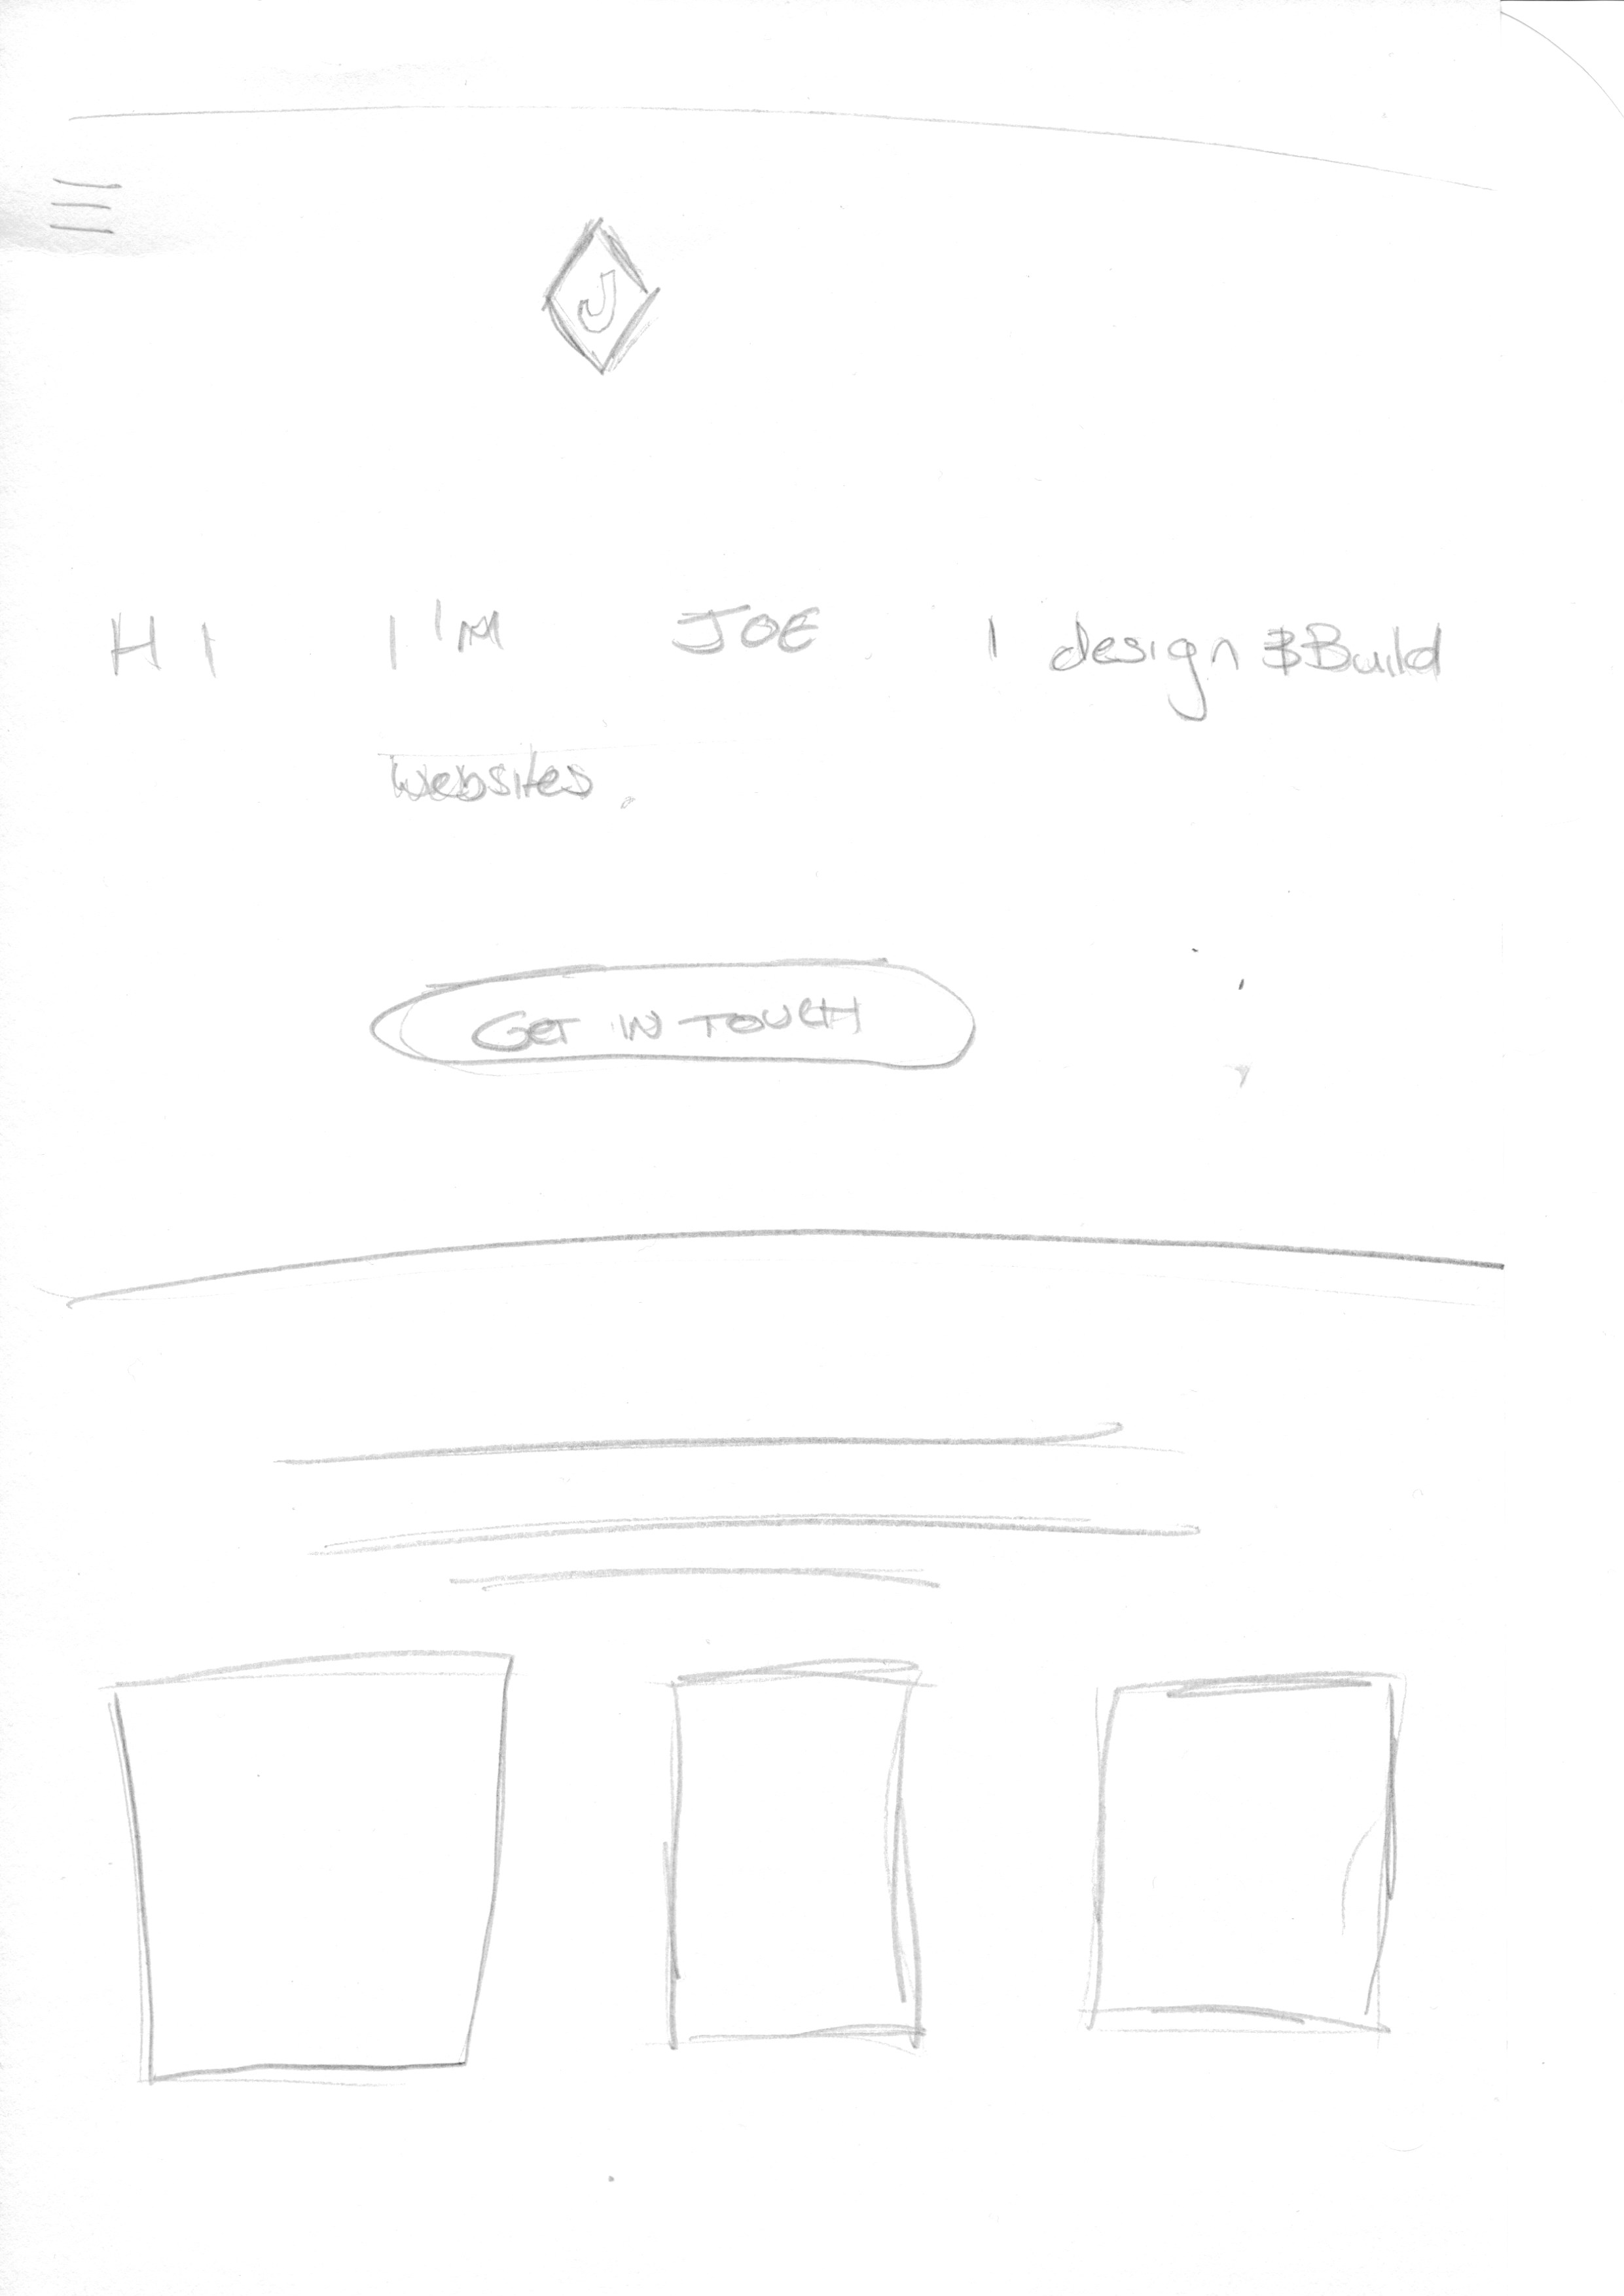 J
HI I'M JOE I design & Build
websites.
GET IN TOUCH